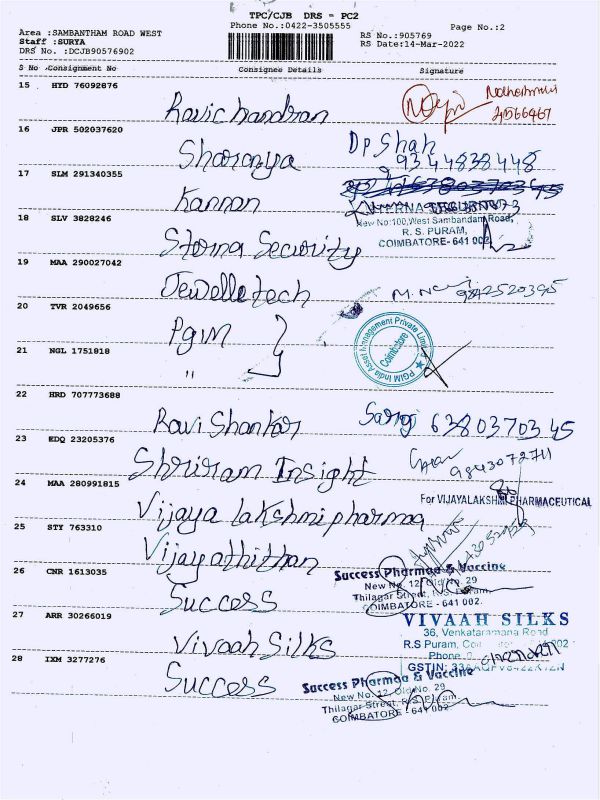 TPC/CJB DRS = PC2
Phone No.:0422-3505555
Page No.:2
Area :SAMBANTHAM ROAD WEST
Staff :SURYA
DRS No. :DCJB90576902
RS No.:905769
RS Date:14-Mar-2022
S No Consignment No Consignee Details Signature
15 HYD 76092876
Ravichandran
16 JPR 502037620
Sharanya
Dp Shah
9344838448
17 SLM 291340355
Kannan
New No:100,West Sambandam Road,
R. S. PURAM,
COIMBATORE- 641 002
18 SLV 3828246
Storna Security
19 MAA 290027042
Jewelletech
9842520395
20 TVR 2049656
Pgim
PGIM India Asset Management Private Limited
Coimbatore
21 NGL 1751818
"
22 HRD 707773688
Ravi Shankar
6380370345
23 EDQ 23205376
Shriram Insight
9843072711
24 MAA 280991815
Vijaya lakshmi pharma
For VIJAYALAKSHMI PHARMACEUTICAL
25 STY 763310
Vijayathithan
26 CNR 1613035
Success
Success Pharmaa & Vaccine
New No. 12, Old No. 29
Thilagar Street, R.S. Puram,
COIMBATORE - 641 002.
27 ARR 30266019
Vivaah Silks
VIVAAH SILKS
36, Venkataramana Road
R.S Puram, 002
Phone
GSTIN:
28 IXM 3277276
Success
Success Pharmaa & Vaccine
New No. 12, Old No. 29
Thilagar Street, R.S. Puram,
COIMBATORE - 641 002